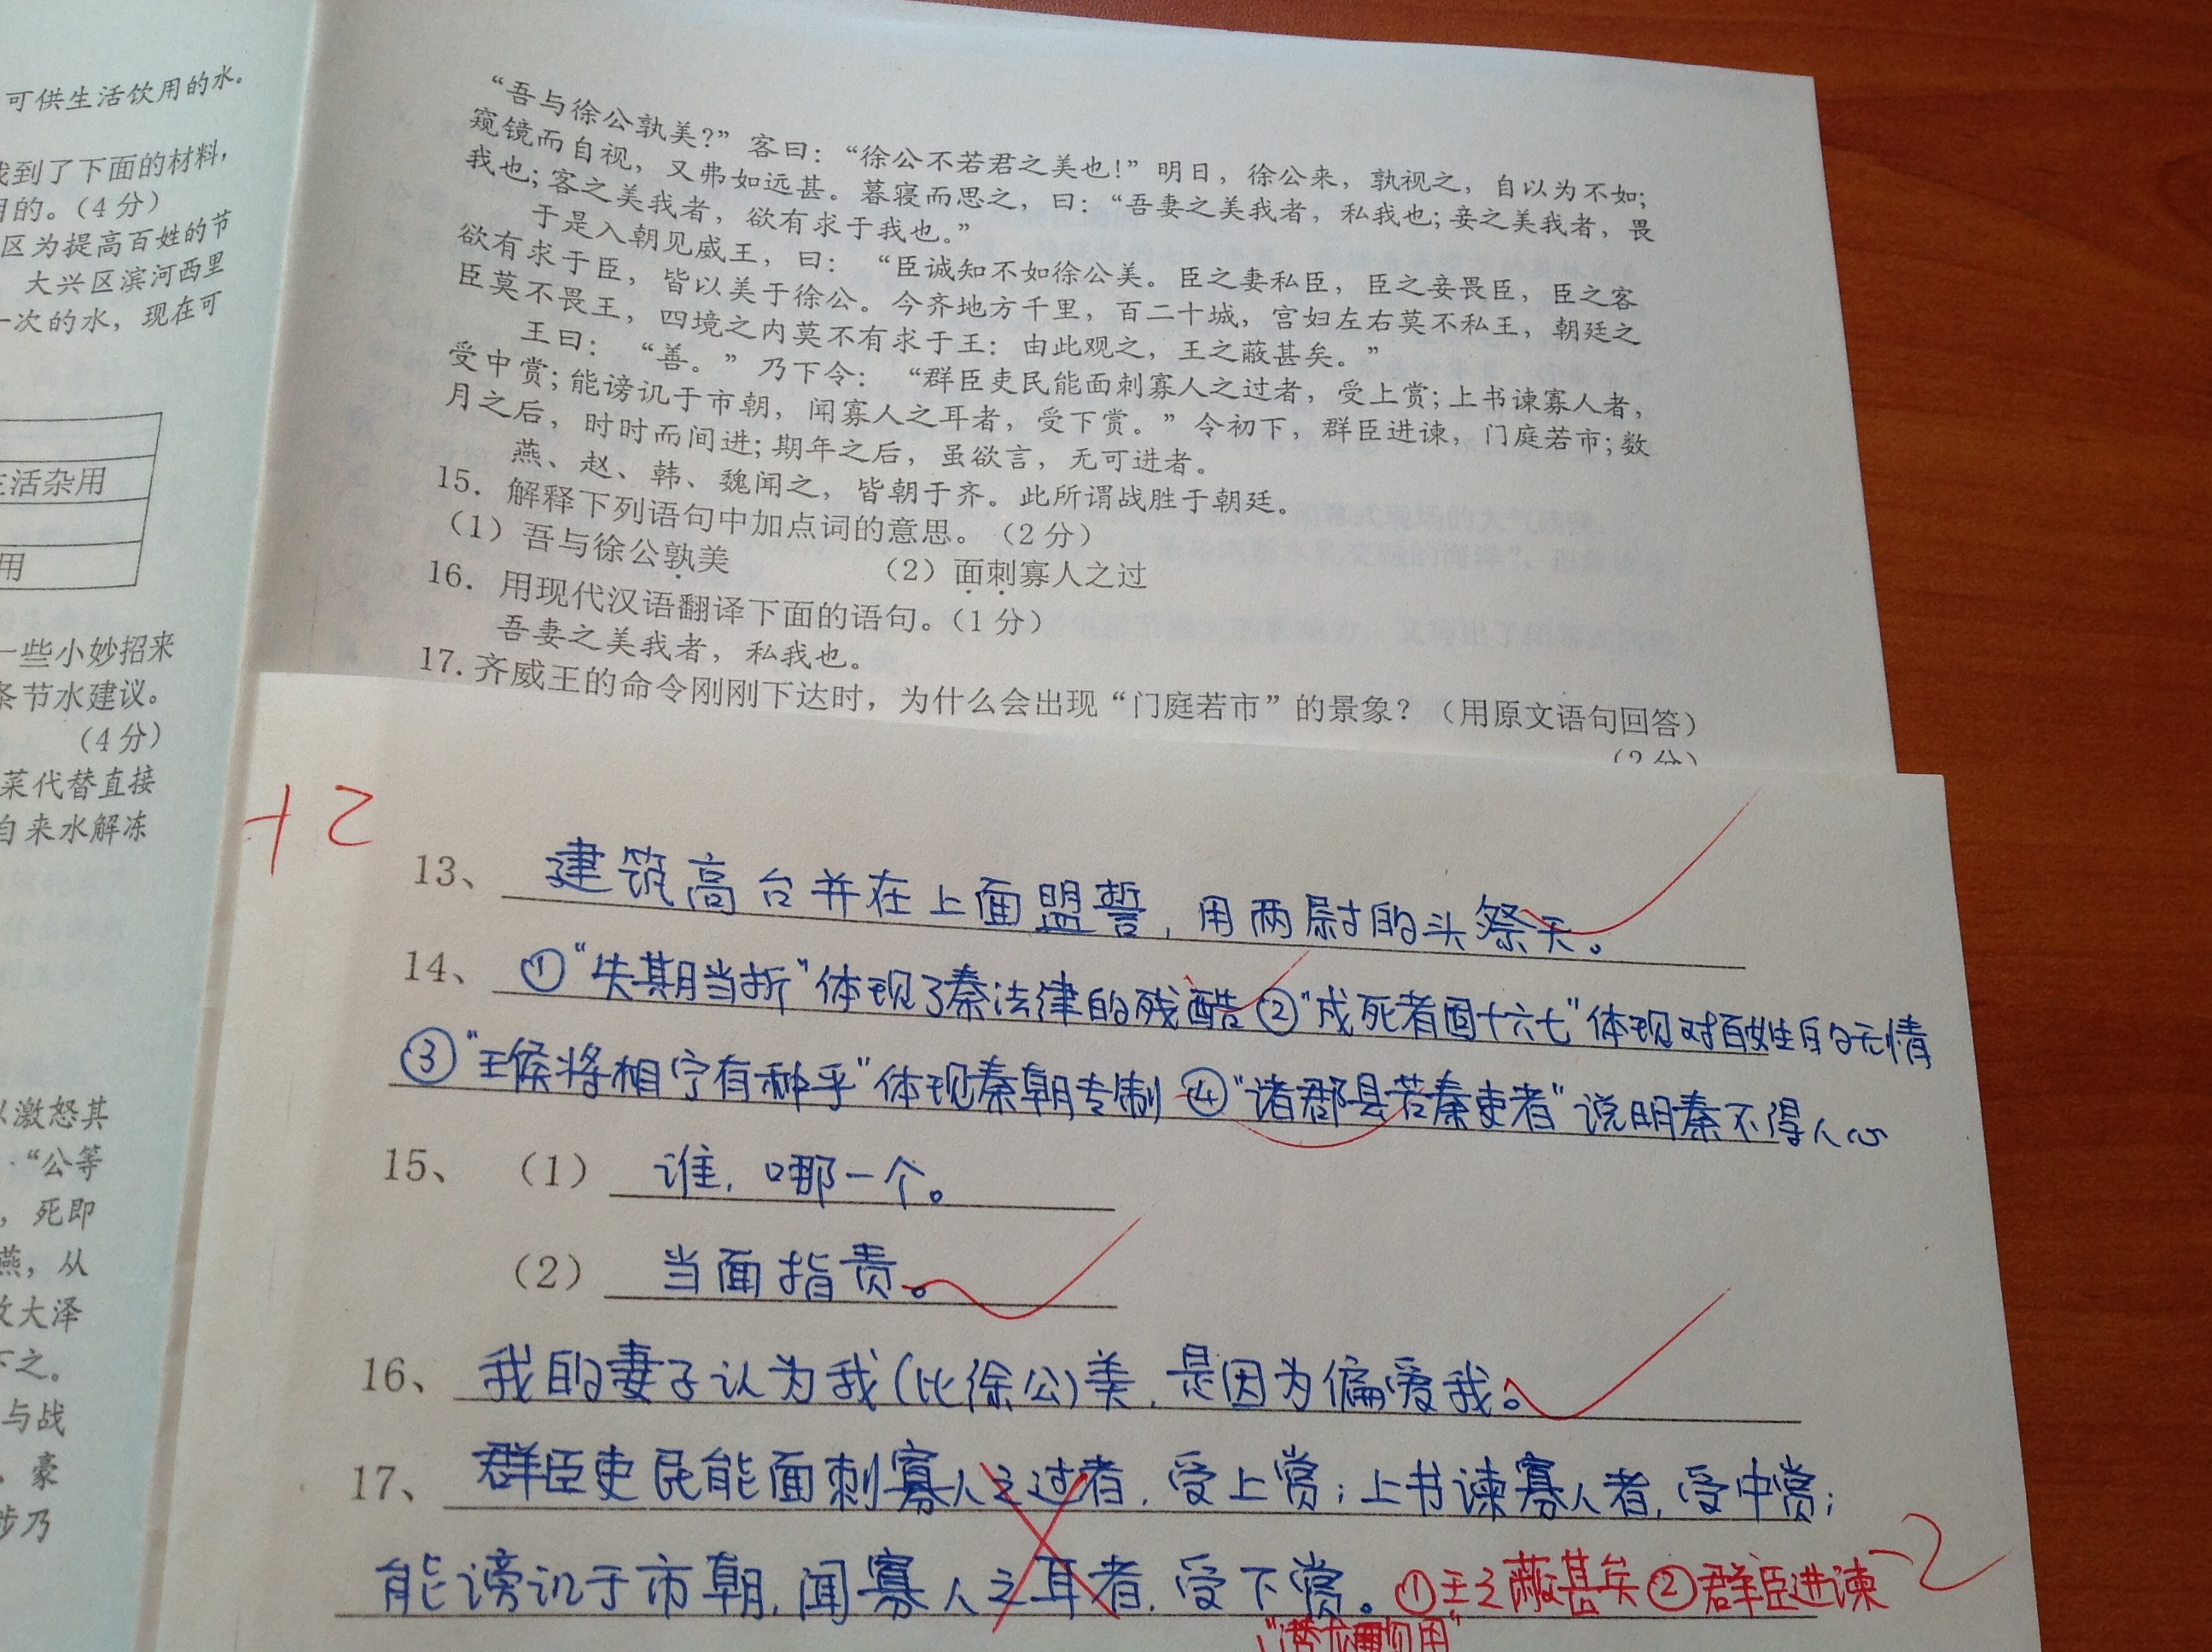 可供生活饮用的水。
找到了下面的材料，
用的。（4分）
区为提高百姓的节
大兴区滨河西里
一次的水，现在可
生活杂用
用
一些小妙招来
条节水建议。
（4分）
菜代替直接
自来水解冻
以激怒其
“公等
，死即
燕，从
攻大泽
下之。
与战
、豪
涉乃
“吾与徐公孰美？”客曰：“徐公不若君之美也！”明日，徐公来，孰视之，自以为不如；
窥镜而自视，又弗如远甚。暮寝而思之，曰：“吾妻之美我者，私我也；妾之美我者，畏
我也；客之美我者，欲有求于我也。”
于是入朝见威王，曰：“臣诚知不如徐公美。臣之妻私臣，臣之妾畏臣，臣之客
欲有求于臣，皆以美于徐公。今齐地方千里，百二十城，宫妇左右莫不私王，朝廷之
臣莫不畏王，四境之内莫不有求于王：由此观之，王之蔽甚矣。”
王曰：“善。”乃下令：“群臣吏民能面刺寡人之过者，受上赏；上书谏寡人者，
受中赏；能谤讥于市朝，闻寡人之耳者，受下赏。”令初下，群臣进谏，门庭若市；数
月之后，时时而间进；期年之后，虽欲言，无可进者。
燕、赵、韩、魏闻之，皆朝于齐。此所谓战胜于朝廷。
15．解释下列语句中加点词的意思。（2分）
（1）吾与徐公孰美 （2）面刺寡人之过
16．用现代汉语翻译下面的语句。（1分）
吾妻之美我者，私我也。
17．齐威王的命令刚刚下达时，为什么会出现“门庭若市”的景象？（用原文语句回答）
（2分）
+2
13、建筑高台并在上面盟誓，用两尉的头祭天。
14、①“失期当折”体现了秦法律的残酷②“戍死者固十六七”体现对百姓的无情
③“王侯将相宁有种乎”体现秦朝专制④“诸郡县苦秦吏者”说明秦不得人心
15、（1）谁，哪一个。
（2）当面指责。
16、我的妻子认为我（比徐公）美，是因为偏爱我。
17、群臣吏民能面刺寡人之过者，受上赏；上书谏寡人者，受中赏；
能谤讥于市朝，闻寡人之耳者，受下赏。①王之蔽甚矣②群臣进谏 -2